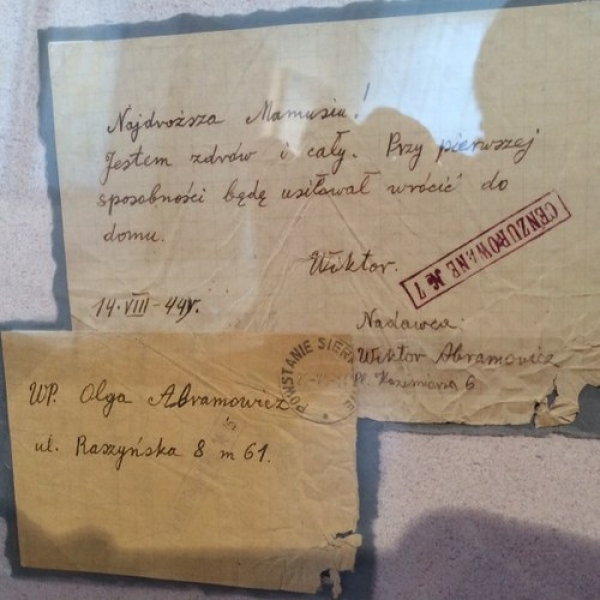 Najdroższa Mamusiu!
Jestem zdrów i cały. Przy pierwszej
sposobności będę usiłował wrócić do
domu.
Wiktor.
CENZUROWANE № 7
14.VIII-44r.
Nadawca:
Wiktor Abramowicz
Pl. Kazimierza 6
POWSTANIE SIER
WP. Olga Abramowicz
ul. Raszyńska 8 m 61.